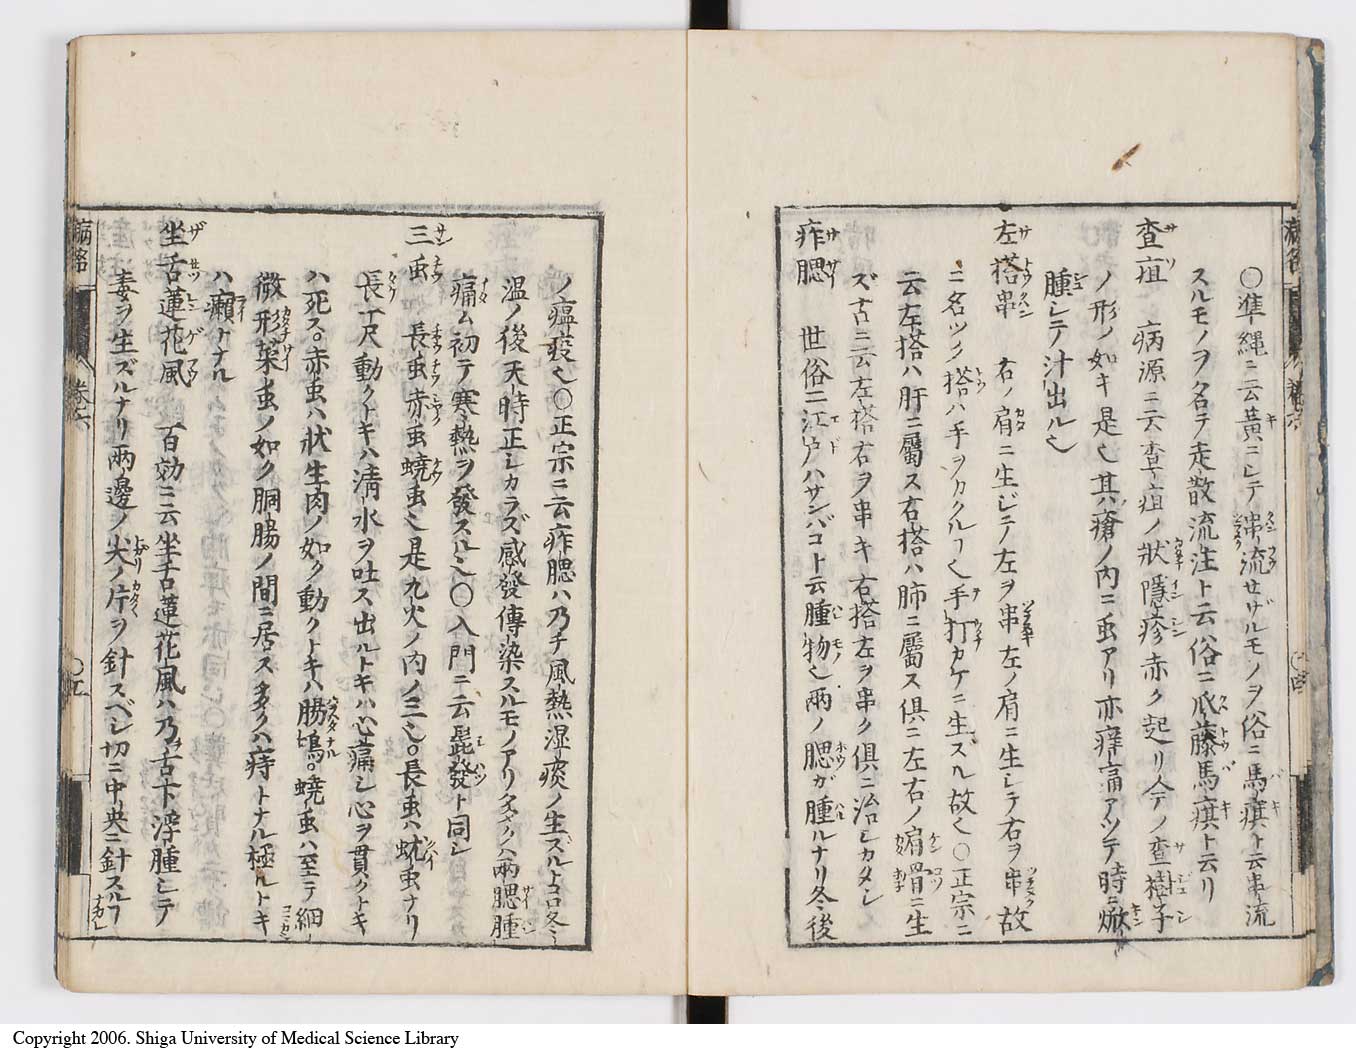 ○準縄ニ云黄ニシテ串流せザルモノヲ俗ニ馬旗ト云串流
スルモノヲ名テ走散流注ト云俗ニ瓜藤馬旗ト云リ
査疽 病源ニ云査疽ノ状隱疹赤ク起リ今ノ査子
ノ形ノ如キ是也其瘡ノ内ニ虫アリ亦痒痛アツテ時ニ焮
腫シテ汁出ル也
左搭串 右ノ肩ニ生ジテ左ヲ串左ノ肩ニ生シテ右ヲ串故
ニ名ツク搭ハ手ヲカクルヿ也手打カケニ生スル故也○正宗ニ
云左搭ハ肝ニ屬ス右搭ハ肺ニ屬ス俱ニ左右ノ肩骨ニ生
ズ古ニ云左搭右ヲ串キ右搭左ヲ串ク俱ニ治シカタシ
痄腮 世俗ニ江戸ハサンバコト云腫物也兩ノ腮ガ腫ルナリ冬後
ノ瘟疫也○正宗ニ云痄腮ハ乃チ風熱湿痰ノ生ズル
温ノ後天時正シカラズ感發傳染スルモノアリ多クハ兩腮腫
痛ム初テ寒熱ヲ發スル也○入門ニ云髱發ト同シ
三虫 長虫赤虫蟯虫也是九虫ノ内ノ三也。長虫ハ蚘虫ナリ
長一尺動クトキハ淸水ヲ吐ス出ルトキハ心痛シ心ヲ貫クトキ
ハ死ス。赤虫ハ状生肉ノ如ク動クトキハ腸鳴。蟯虫ハ至テ細
微形菜虫ノ如ク胴腸ノ間ニ居ス多クハ痔トナル極ルトキ
ハ癩トナル
坐舌蓮花風 百効ニ云坐舌蓮花風ハ乃チ舌下浮腫シテ
毒ヲ生ズルナリ兩邊ノ尖ノ片ヲ針スベシ切ニ中央ニ針スルヿ